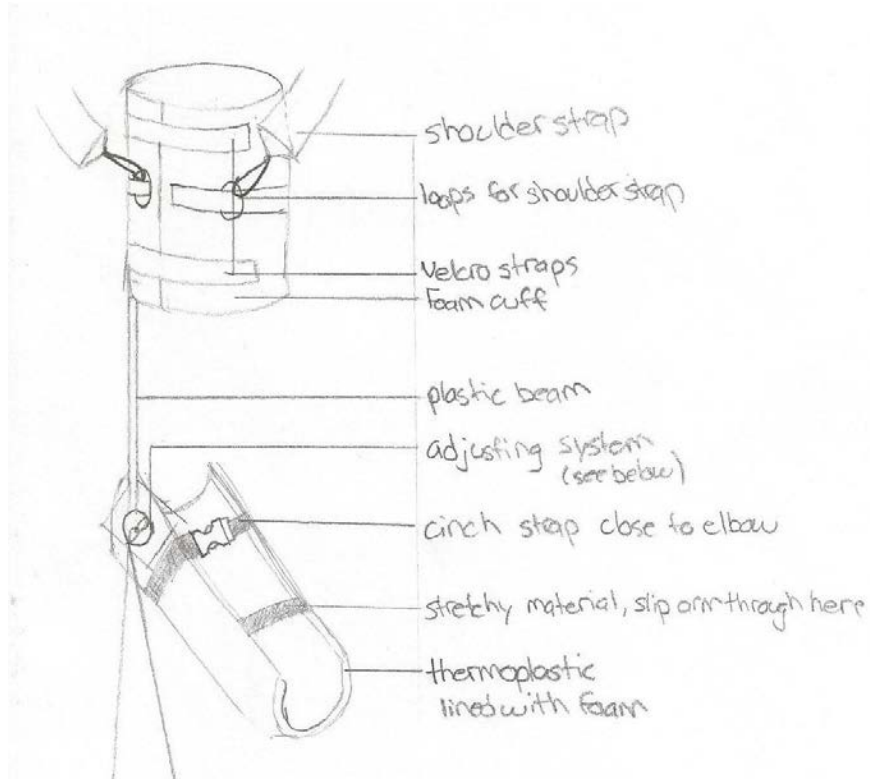 shoulder strap
loops for shoulder strap
Velcro straps
Foam cuff
plastic beam
adjusting system
(see below)
cinch strap close to elbow
stretchy material, slip arm through here
thermoplastic
lined with foam